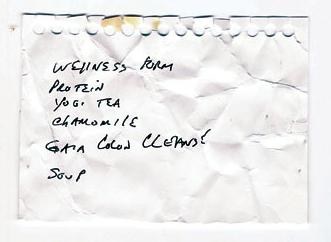 WELLNESS FORM
PROTEIN
YOGI TEA
CHAMOMILE
GAIA COLON CLEANSE
SOUP